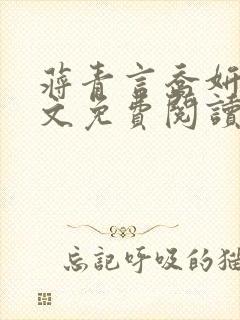 蔣青言喬妍
文免費閱讀
忘記呼吸的猫